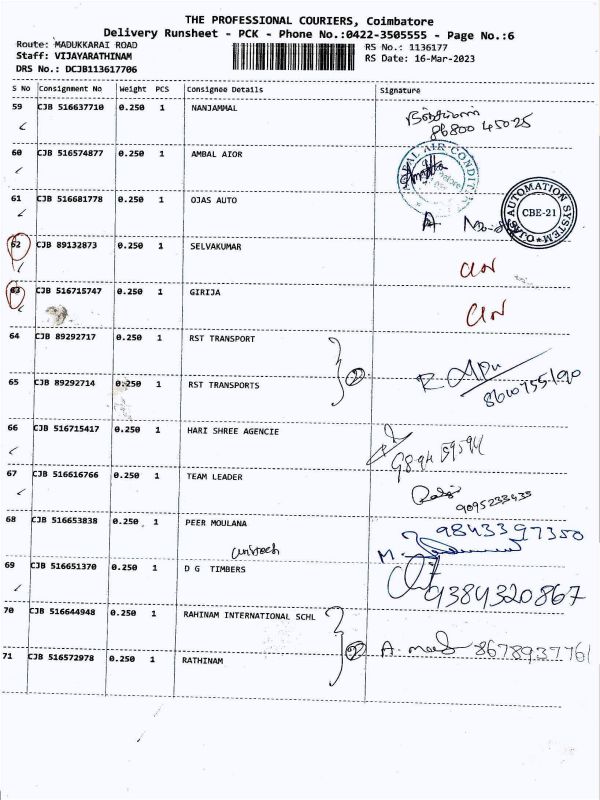 THE PROFESSIONAL COURIERS, Coimbatore
Delivery Runsheet - PCK - Phone No.:0422-3505555 - Page No.:6
Route: MADUKKARAI ROAD
Staff: VIJAYARATHINAM
DRS No.: DCJB113617706
RS No.: 1136177
RS Date: 16-Mar-2023
S No Consignment No Weight PCS Consignee Details Signature
59 CJB 516637710 0.250 1 NANJAMMAL
86800 45025
60 CJB 516574877 0.250 1 AMBAL AIOR
61 CJB 516681778 0.250 1 OJAS AUTO
OJAS AUTOMATION SYSTEM
CBE-21
62 CJB 89132873 0.250 1 SELVAKUMAR
63 CJB 516715747 0.250 1 GIRIJA
64 CJB 89292717 0.250 1 RST TRANSPORT
2
65 CJB 89292714 0.250 1 RST TRANSPORTS
66 CJB 516715417 0.250 1 HARI SHREE AGENCIE
67 CJB 516616766 0.250 1 TEAM LEADER
9095233433
68 CJB 516653838 0.250 1 PEER MOULANA
9843397350
69 CJB 516651370 0.250 1 D G TIMBERS
9384320867
70 CJB 516644948 0.250 1 RAHINAM INTERNATIONAL SCHL
2
8678937761
71 CJB 516572978 0.250 1 RATHINAM